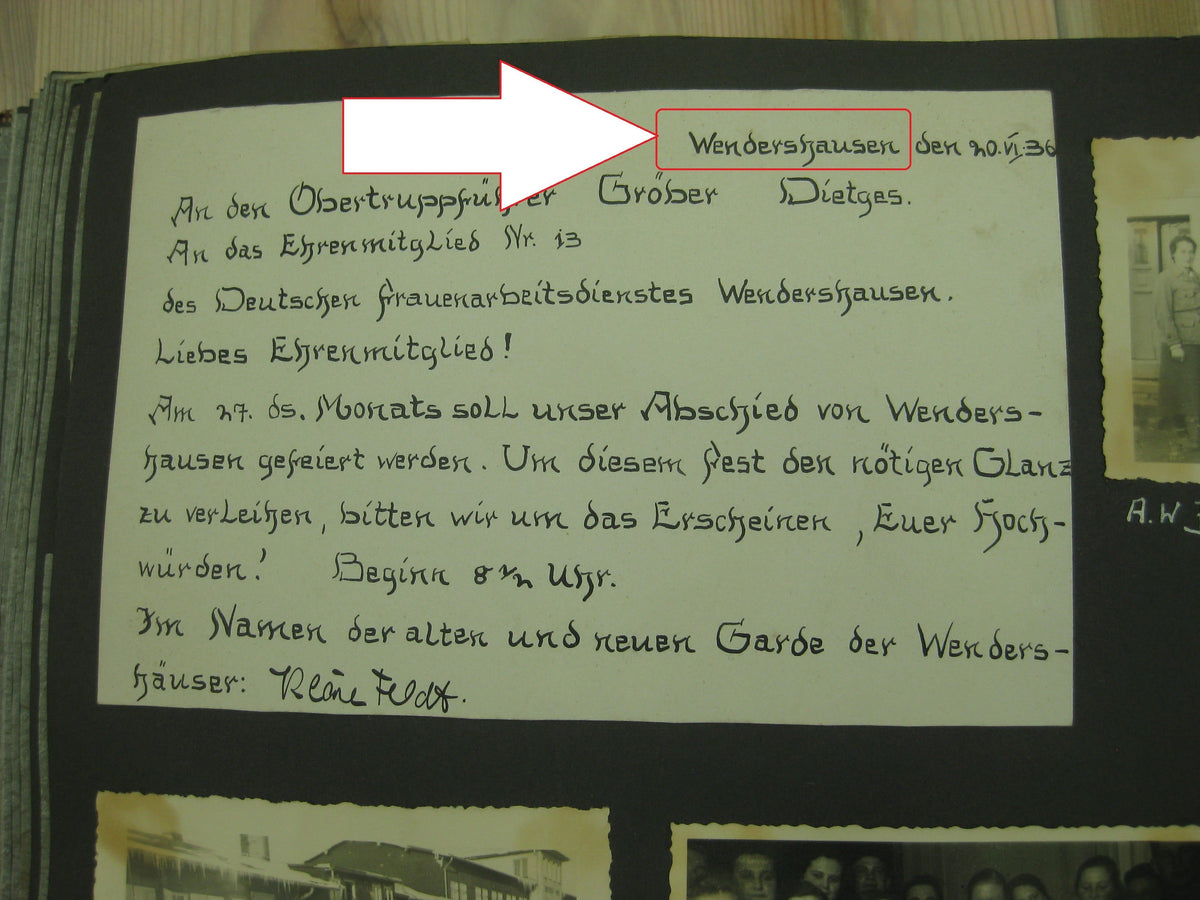 Wendershausen den 20.VI.36
An den Obertruppführer Gröber Dietges.
An das Ehrenmitglied Nr. 13
des Deutschen Frauenarbeitsdienstes Wendershausen.
Liebes Ehrenmitglied!
Am 27. ds. Monats soll unser Abschied von Wenders-
hausen gefeiert werden. Um diesem Fest den nötigen Glanz
zu verleihen, bitten wir um das Erscheinen, Euer Hoch-
würden! Beginn 8 1/2 Uhr.
Im Namen der alten und neuen Garde der Wenders-
häuser: Kläre Feldt.
A.W